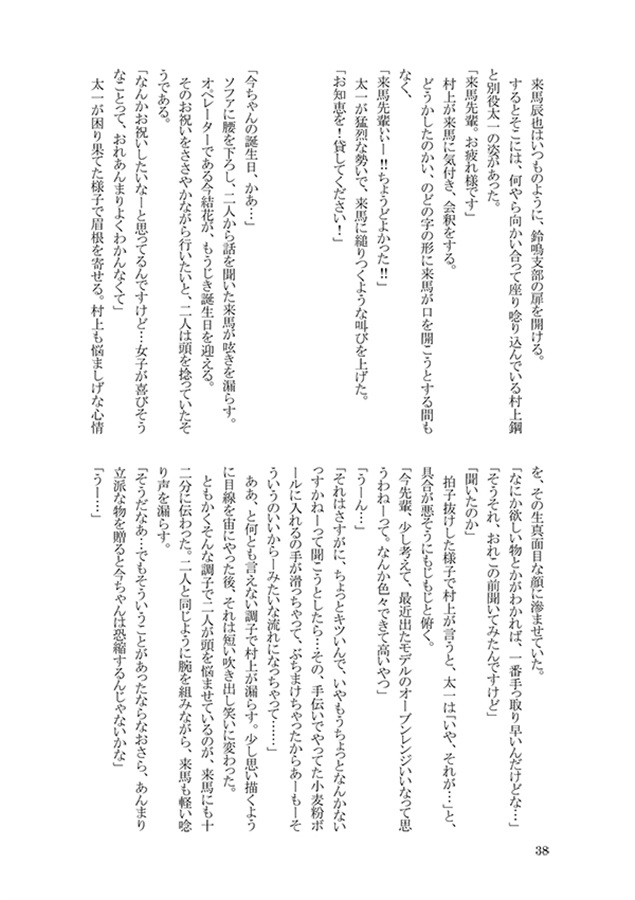 来馬辰也はいつものように、鈴鳴支部の扉を開ける。
するとそこには、何やら向かい合って座り唸り込んでいる村上鋼
と別役太一の姿があった。
「来馬先輩。お疲れ様です」
村上が来馬に気付き、会釈をする。
どうかしたのかい、のどの字の形に来馬が口を開こうとする間も
なく、
「来馬先輩ぃー!!ちょうどよかった!!」
太一が猛烈な勢いで、来馬に縋りつくような叫びを上げた。
「お知恵を!貸してください!」
「今ちゃんの誕生日、かぁ…」
ソファに腰を下ろし、二人から話を聞いた来馬が呟きを漏らす。
オペレーターである今結花が、もうじき誕生日を迎える。
そのお祝いをささやかながら行いたいと、二人は頭を捻っていたそ
うである。
「なんかお祝いしたいなーと思ってるんですけど…女子が喜びそう
なことって、おれあんまりよくわかんなくて」
太一が困り果てた様子で眉根を寄せる。村上も悩ましげな心情
を、その生真面目な顔に滲ませていた。
「なにか欲しい物とかがわかれば、一番手っ取り早いんだけどな…」
「そうそれ、おれこの前聞いてみたんですけど」
「聞いたのか」
拍子抜けした様子で村上が言うと、太一は「いや、それが…」と、
具合が悪そうにもじもじと俯く。
「今先輩、少し考えて、最近出たモデルのオーブンレンジいいなって思
うわねーって。なんか色々できて高いやつ」
「うーん…」
「それはさすがに、ちょっとキツいんで、いやもうちょっとなんかない
っすかねーって聞こうとしたら…その、手伝いでやってた小麦粉ボ
ールに入れるの手が滑っちゃって、ぶちまけちゃったからあーもーそ
ういうのいいからーみたいな流れになっちゃって……」
ああ、と何とも言えない調子で村上が漏らす。少し思い描くよう
に目線を宙にやった後、それは短い吹き出し笑いに変わった。
ともかくそんな調子で二人が頭を悩ませているのが、来馬にも十
二分に伝わった。二人と同じように腕を組みながら、来馬も軽い唸
り声を漏らす。
「そうだなあ…でもそういうことがあったならなおさら、あんまり
立派な物を贈ると今ちゃんは恐縮するんじゃないかな」
「うー…」
38